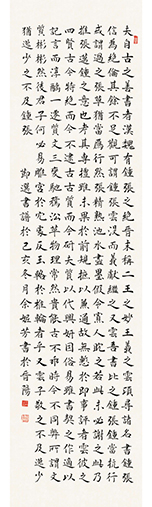 夫自古之善書者漢魏有鍾張之絕晉末稱二王之妙王羲之雲頃尋諸名書鍾張
信為絕倫其餘不足觀可謂鍾張雲沒而羲獻繼之又雲吾書比之鍾張鍾當抗行
或謂過之張草猶當雁行然張精熟池水盡墨假令寡人耽之若此未必謝之此乃
推張邁鍾之意也考其專擅雖未果於前規摭以兼通故無慚於即事評者雲彼之
四賢古今特絕而今不逮古古質而今妍夫質以代興妍因俗易雖書契之作適以
記言而淳醨一遷質文三變馳騖沿革物理常然貴能古不乖時今不同弊所謂文
質彬彬然後君子何必易雕宮於穴處反玉輅於椎輪者乎又雲子敬之不及逸少
猶逸少之不及鍾張
節選書譜於己亥冬月余芳書於晉陽